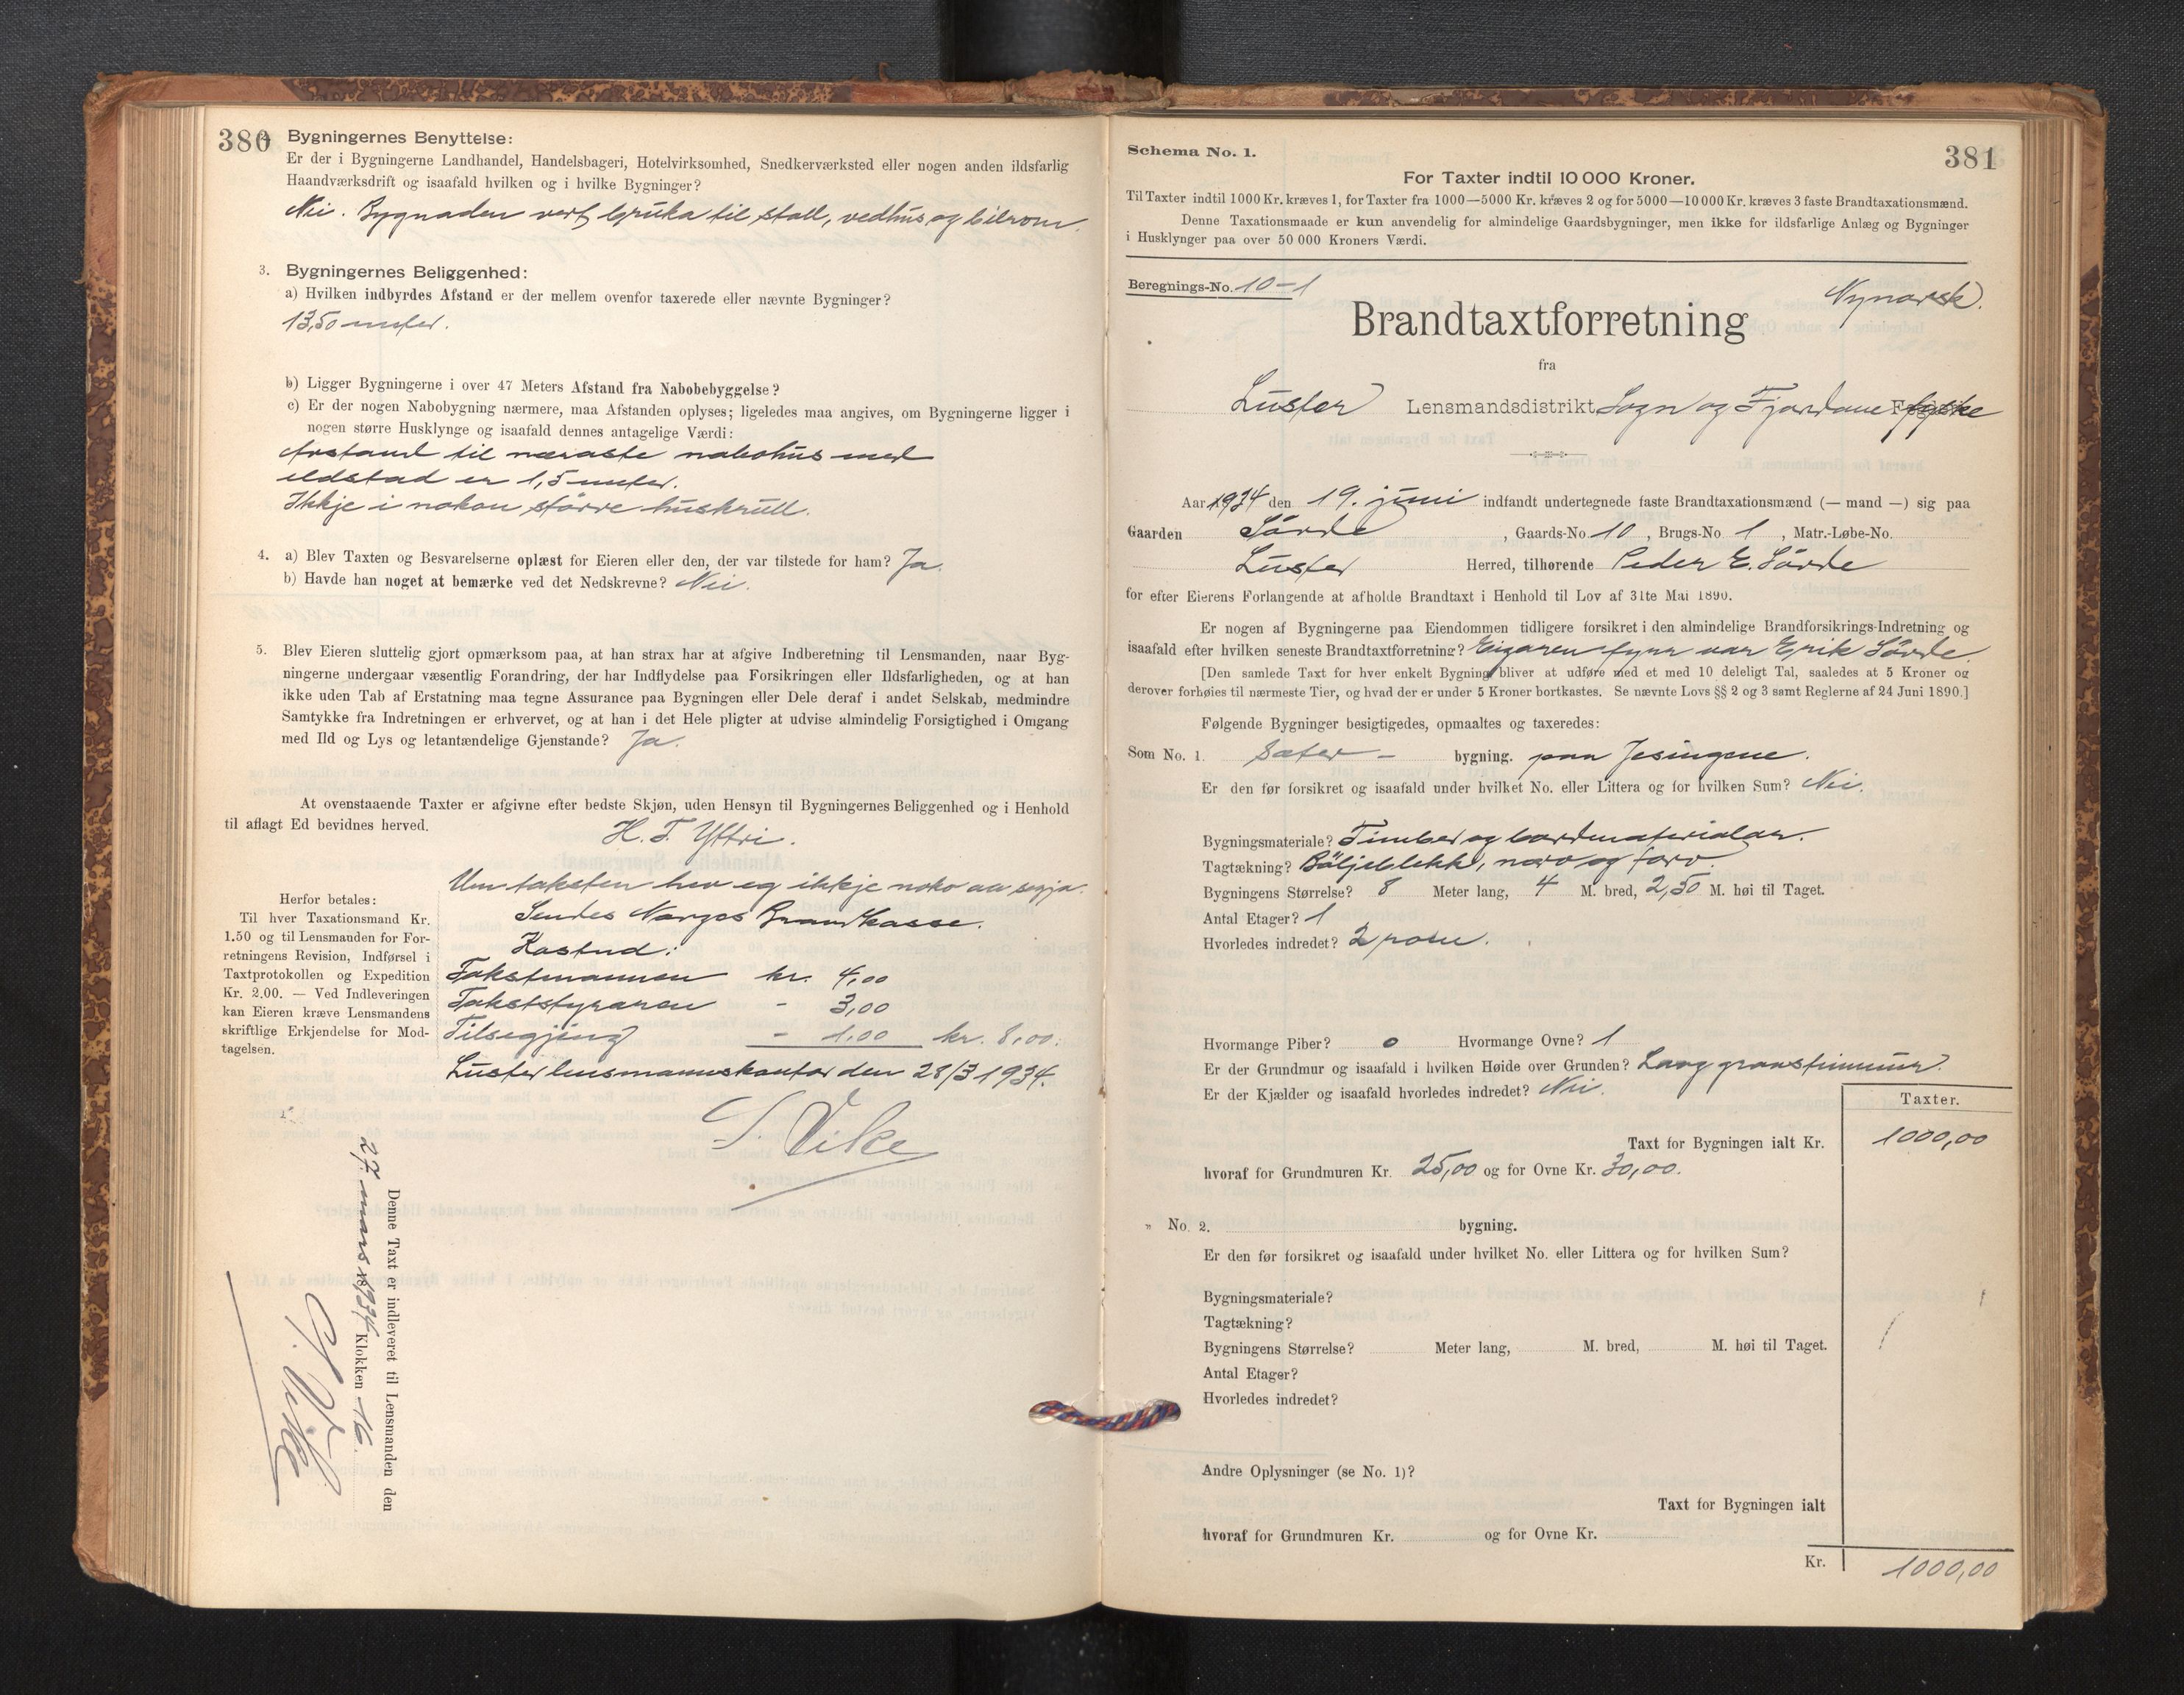 380
2. Bygningernes Benyttelse:
Er der i Bygningerne Landhandel, Handelsbageri, Hotelvirksomhed, Snedkerværksted eller nogen anden ildsfarlig
Haandværksdrift og isaafald hvilken og i hvilke Bygninger?
Nei. Bygnaden vert bruka til stall, vedhus og bilrom.
3. Bygningernes Beliggenhed:
a) Hvilken indbyrdes Afstand er der mellem ovenfor taxerede eller nævnte Bygninger?
13,50 meter.
b) Ligger Bygningerne i over 47 Meters Afstand fra Nabobebyggelse?
c) Er der nogen Nabobygning nærmere, maa Afstanden oplyses; ligeledes maa angives, om Bygningerne ligger i
nogen større Husklynge og isaafald dennes antagelige Værdi:
Avstand til næraste nabohus med
eldstad er 1,5 meter.
Ikkje i nokon större huskrull.
4. a) Blev Taxten og Besvarelserne oplæst for Eieren eller den, der var tilstede for ham? Ja.
b) Havde han noget at bemærke ved det Nedskrevne? Nei.
5. Blev Eieren sluttelig gjort opmærksom paa, at han strax har at afgive Indberetning til Lensmanden, naar Byg-
ningerne undergaar væsentlig Forandring, der har Indflydelse paa Forsikringen eller Ildsfarligheden, og at han
ikke uden Tab af Erstatning maa tegne Assurance paa Bygningen eller Dele deraf i andet Selskab, medmindre
Samtykke fra Indretningen er erhvervet, og at han i det Hele pligter at udvise almindelig Forsigtighed i Omgang
med Ild og Lys og letantændelige Gjenstande? Ja.
At ovenstaaende Taxter er afgivne efter bedste Skjøn, uden Hensyn til Bygningernes Beliggenhed og i Henhold
til aflagt Ed bevidnes herved.
H. T. Yttri.
Um taksten hev eg ikkje noko aa segja.
Sendes Norges Brandkasse.
Kostnad:
Takstmannen kr. 4,00
Takststyraren - 3,00
Tilsegjing - 1,00 kr. 8,00.
Luster lensmannskontor den 28/3 1934.
S. Vike
Herfor betales:
Til hver Taxationsmand Kr.
1.50 og til Lensmanden for For-
retningens Revision, Indførsel i
Taxtprotokollen og Expedition
Kr. 2.00. — Ved Indleveringen
kan Eieren kræve Lensmandens
skriftlige Erkjendelse for Mod-
tagelsen.
Denne Taxt er indleveret til Lensmanden den
27. mars 1934 Klokken 16.
S. Vike
381
Schema No. 1.
For Taxter indtil 10 000 Kroner.
Til Taxter indtil 1000 Kr. kræves 1, for Taxter fra 1000—5000 Kr. kræves 2 og for 5000—10 000 Kr. kræves 3 faste Brandtaxationsmænd.
Denne Taxationsmaade er kun anvendelig for almindelige Gaardsbygninger, men ikke for ildsfarlige Anlæg og Bygninger
i Husklynger paa over 50 000 Kroners Værdi.
Beregnings-No. 10-1
Nynorsk.
Brandtaxtforretning
fra
Luster Lensmandsdistrikt Sogn og Fjordane fylke
Aar 1934 den 19. juni indfandt undertegnede faste Brandtaxationsmænd (— mand —) sig paa
Gaarden Sörde, Gaards-No. 10, Brugs-No. 1, Matr.-Løbe-No.
Luster Herred, tilhørende Peder E. Sörde
for efter Eierens Forlangende at afholde Brandtaxt i Henhold til Lov af 31te Mai 1890.
Er nogen af Bygningerne paa Eiendommen tidligere forsikret i den almindelige Brandforsikrings-Indretning og
isaafald efter hvilken seneste Brandtaxtforretning? Eigaren fyrr var Erik Sörde.
[Den samlede Taxt for hver enkelt Bygning bliver at udføre med et med 10 deleligt Tal, saaledes at 5 Kroner og
derover forhøies til nærmeste Tier, og hvad der er under 5 Kroner bortkastes. Se nævnte Lovs §§ 2 og 3 samt Reglerne af 24 Juni 1890.]
Følgende Bygninger besigtigedes, opmaaltes og taxeredes:
Som No. 1. Sæter- bygning. paa Jesingene.
Er den før forsikret og isaafald under hvilket No. eller Littera og for hvilken Sum? Nei.
Bygningsmateriale? Timber og bordmaterialar.
Tagtækning? Böljeblekk, nævr og torv.
Bygningens Størrelse? 8 Meter lang, 4 M. bred, 2,50 M. høi til Taget.
Antal Etager? 1
Hvorledes indredet? 2 rom.
Hvormange Piber? 0 Hvormange Ovne? 1
Er der Grundmur og isaafald i hvilken Høide over Grunden? Laag graasteinmur.
Er der Kjælder og isaafald hvorledes indredet? Nei.
Taxter.
Taxt for Bygningen ialt Kr. 1000,00
hvoraf for Grundmuren Kr. 25,00 og for Ovne Kr. 30,00.
" No. 2. bygning.
Er den før forsikret og isaafald under hvilket No. eller Littera og for hvilken Sum?
Bygningsmateriale?
Tagtækning?
Bygningens Størrelse? Meter lang, M. bred, M. høi til Taget.
Antal Etager?
Hvorledes indredet?
Andre Oplysninger (se No. 1)?
Taxt for Bygningen ialt
hvoraf for Grundmuren Kr. og for Ovne Kr.
Kr. 1000,00